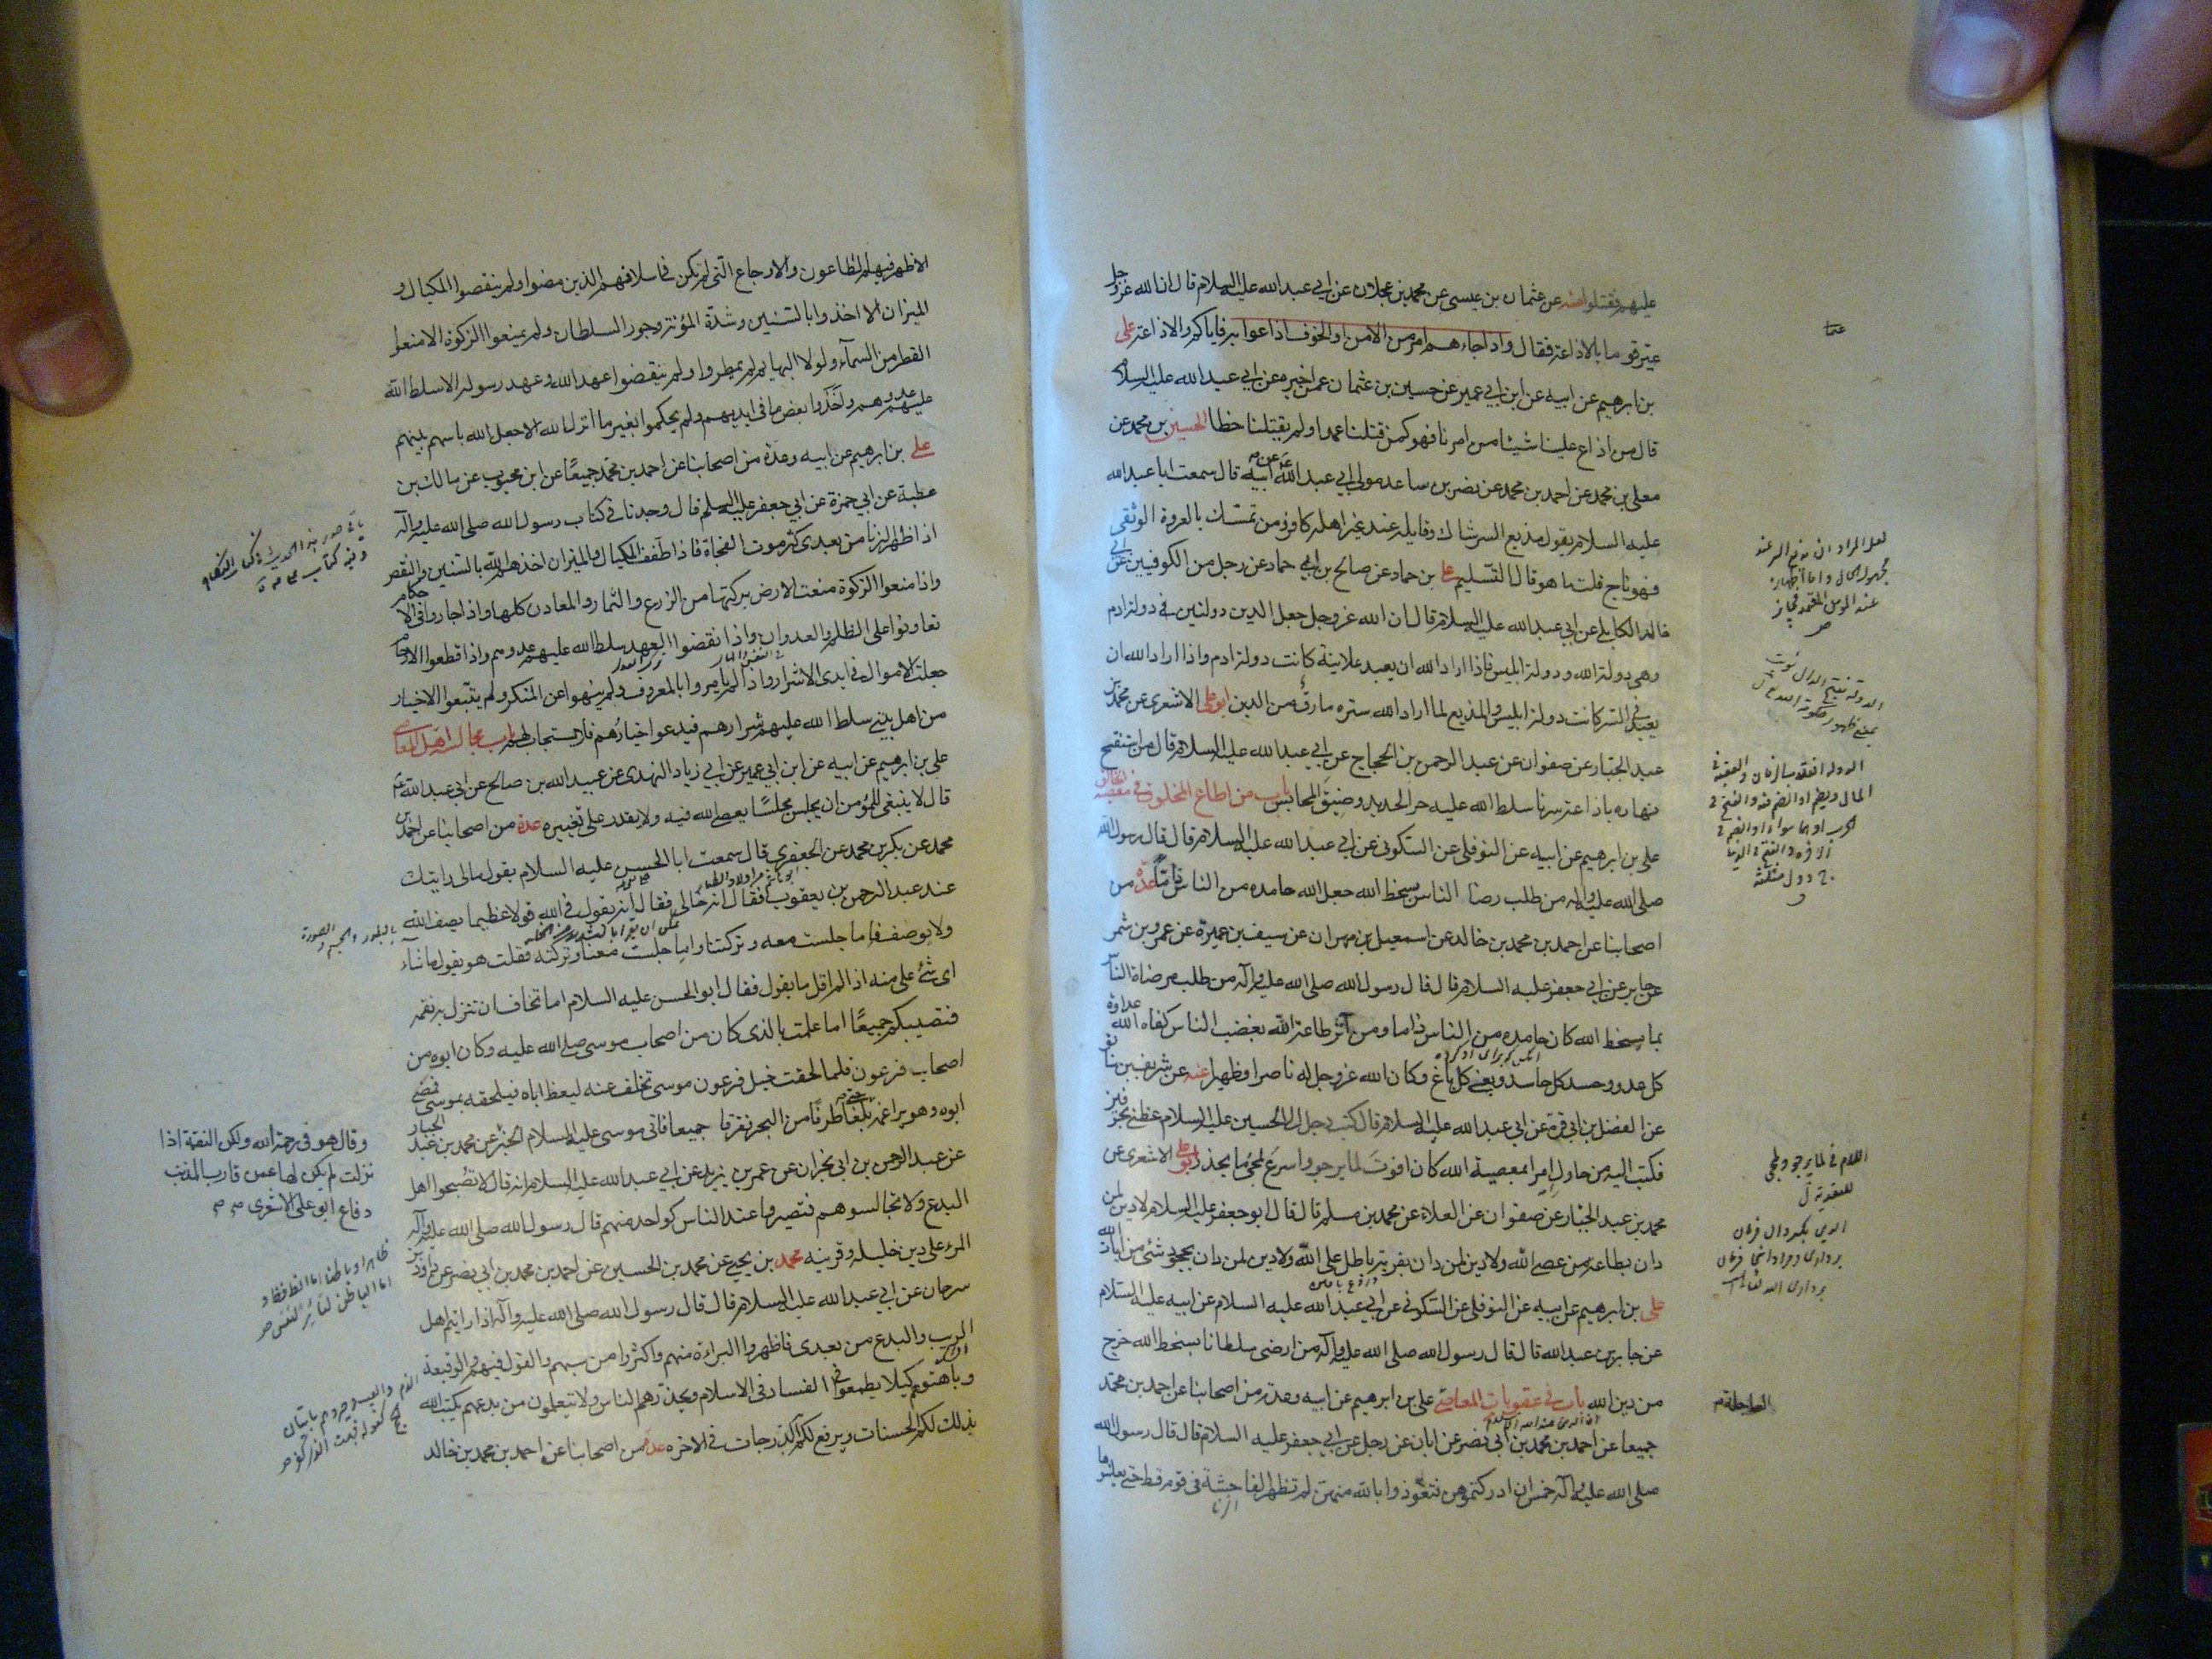 عليهم فقتلوا عنه عن عثمان بن عيسى عن محمد بن عجلان عن ابي عبد الله عليه السلام قال ان الله عز وجل
عير قوما بالاذاعة فقال واذا جاءهم امر من الامن او الخوف اذاعوا به فاياكم والاذاعة على
بن ابرهيم عن ابيه عن ابن ابي عمير عن حسين بن عثمان عمن اخبره عن ابي عبد الله عليه السلام
قال من اذاع علينا شيئا من امرنا فهو كمن قتلنا عمدا ولم يقتلنا خطا الحسين بن محمد عن
معلى بن محمد عن احمد بن محمد عن نصر بن ساعد مولى ابي عبد الله عن ابيه قال سمعت ابا عبد الله
عليه السلام يقول مذيع السر شاك وقايله عند غير اهله كافر ومن تمسك بالعروة الوثقى
فهو ناج قلت ما هو قال التسليم على بن حماد عن صالح بن ابي حماد عن رجل من الكوفيين عن ابي
خالد الكابلي عن ابي عبد الله عليه السلام قال ان الله عز وجل جعل الدين دولتين دولة ادم
وهي دولة الله ودولة ابليس فاذا اراد الله ان يعبد علانية كانت دولة ادم واذا اراد الله ان
يعبد في السر كانت دولة ابليس والمذيع لما اراد الله ستره مارق من الدين ابو علي الاشعرى عن محمد بن
عبد الجبار عن صفوان عن عبد الرحمن بن الحجاج عن ابي عبد الله عليه السلام قال من استفتح
نهاره باذاعة سرنا سلط الله عليه حر الحديد وضيق المحابس باب من اطاع المخلوق في معصية الخالق
على بن ابرهيم عن ابيه عن النوفلى عن السكونى عن ابي عبد الله عليه السلام قال قال رسول الله
صلى الله عليه واله من طلب رضا الناس بسخط الله جعل الله حامده من الناس ذاما عدة من
اصحابنا عن احمد بن محمد بن خالد عن اسمعيل بن مهران عن سيف بن عميرة عن عمرو بن شمر
عن جابر عن ابي جعفر عليه السلام قال قال رسول الله صلى الله عليه وآله من طلب مرضاة الناس
بما يسخط الله كان حامده من الناس ذاما ومن آثر طاعة الله بغضب الناس كفاه الله عداوة
كل عدو وحسد كل حاسد وبغي كل باغ وكان الله عز وجل له ناصرا وظهيرا عنه عن شريف بن سابق
عن الفضل بن ابي قرة عن ابي عبد الله عليه السلام قال كتب رجل الى الحسين عليه السلام عظني بحرفين
فكتب اليه من حاول امرا بمعصية الله كان افوت لما يرجو واسرع لمجئ ما يحذر ابو علي الاشعرى عن
محمد بن عبد الجبار عن صفوان عن العلاء عن محمد بن مسلم قال قال ابو جعفر عليه السلام لا دين لمن
دان بطاعة من عصى الله ولا دين لمن دان بفرية باطل على الله ولا دين لمن دان بجحود شئ من ايات الله
على بن ابرهيم عن ابيه عن النوفلى عن السكونى عن ابي عبد الله عليه السلام عن ابيه عليه السلام
عن جابر بن عبد الله قال قال رسول الله صلى الله عليه وآله من ارضى سلطانا بسخط الله خرج
من دين الله باب في عقوبات المعاصي على بن ابرهيم عن ابيه وعدة من اصحابنا عن احمد بن محمد
جميعا عن احمد بن محمد بن ابي نصر عن ابان عن رجل عن ابي جعفر عليه السلام قال قال رسول الله
صلى الله عليه وآله خمس ان ادركتموهن فتعوذوا بالله منهن لم تظهر الفاحشة في قوم قط حتى يعلنوها
الزنا
لعل المراد ان مذيع السر عند
مجهول الحال
الا ظهر فيهم الطاعون والاوجاع التي لم تكن في اسلافهم الذين مضوا ولم ينقصوا المكيال و
الميزان الا اخذوا بالسنين وشدة المؤنة وجور السلطان ولم يمنعوا الزكوة الا منعوا
القطر من السماء ولولا البهايم لم يمطروا ولم ينقضوا عهد الله وعهد رسوله الا سلط الله
عليهم عدوهم واخذوا بعض ما في ايديهم ولم يحكموا بغير ما انزل الله الا جعل الله باسهم بينهم
على بن ابرهيم عن ابيه وعدة من اصحابنا عن احمد بن محمد جميعا عن ابن محبوب عن مالك بن
عطية عن ابي حمزة عن ابي جعفر عليه السلم قال وجدنا في كتاب رسول الله صلى الله عليه وآله
اذا ظهر الزنا من بعدي كثر موت الفجأة فاذا طفف المكيال والميزان اخذهم الله بالسنين والنقص
واذا منعوا الزكوة منعت الارض بركتها من الزرع والثمار والمعادن كلها واذا جاروا في الاحكام
تعاونوا على الظلم والعدوان واذا نقضوا العهد سلط الله عليهم عدوهم واذا قطعوا الارحام
جعلت الاموال في ايدى الاشرار واذا لم يامروا بالمعروف ولم ينهوا عن المنكر ولم يتبعوا الاخيار
من اهل بيتي سلط الله عليهم شرارهم فيدعوا خيارهم فلا يستجاب لهم باب مجالسة اهل المعاصي
على بن ابرهيم عن ابيه عن ابن ابي عمير عن ابي زياد النهدى عن عبيد الله بن صالح عن ابي عبد الله ع
قال لا ينبغى للمؤمن ان يجلس مجلسا يعصى الله فيه ولا يقدر على تغييره عدة من اصحابنا عن احمد بن
محمد عن بكر بن محمد عن الجعفري قال سمعت ابا الحسن عليه السلام يقول مالى رايتك
عند عبد الرحمن بن يعقوب فقال انه خالى فقال انه يقول في الله قولا عظيما يصف الله
ولا يوصف فاما جلست معه وتركتنا واما جلست معنا وتركته فقلت هو يقول ما شاء
اى شئ على منه اذا لم اقل ما يقول فقال ابو الحسن عليه السلام اما تخاف ان تنزل به نقمة
فتصيبكم جميعا اما علمت بالذى كان من اصحاب موسى صلى الله عليه وكان ابوه من
اصحاب فرعون فلما لحقت خيل فرعون موسى تخلف عنه ليعظ اباه فيلحقه بموسى فمضى
ابوه وهو يراغمه حتى بلغا طرفا من البحر فغرقا جميعا فاتى موسى عليه السلام الخبر عن محمد بن عبد الجبار
عن عبد الرحمن بن ابي نجران عن عمر بن يزيد عن ابي عبد الله عليه السلام انه قال لا تصحبوا اهل
البدع ولا تجالسوهم فتصيروا عند الناس كواحد منهم قال رسول الله صلى الله عليه وآله
المرء على دين خليله وقرينه محمد بن يحيى عن محمد بن الحسين عن احمد بن محمد بن ابي نصر عن داود بن
سرحان عن ابي عبد الله عليه السلام قال قال رسول الله صلى الله عليه وآله اذا رايتم اهل
الريب والبدع من بعدى فاظهروا البراءة منهم واكثروا من سبهم والقول فيهم والوقيعة
وباهتوهم كيلا يطمعوا في الفساد في الاسلام ويحذرهم الناس ولا يتعلمون من بدعهم يكتب الله
بذلك لكم الحسنات ويرفع لكم الدرجات في الاخره عدة من اصحابنا عن احمد بن محمد بن خالد
وقال هو في رحمة الله ولكن النقمة اذا
نزلت لم يكن لها عمن قارب المذنب
دفاع ابو على الاشعرى